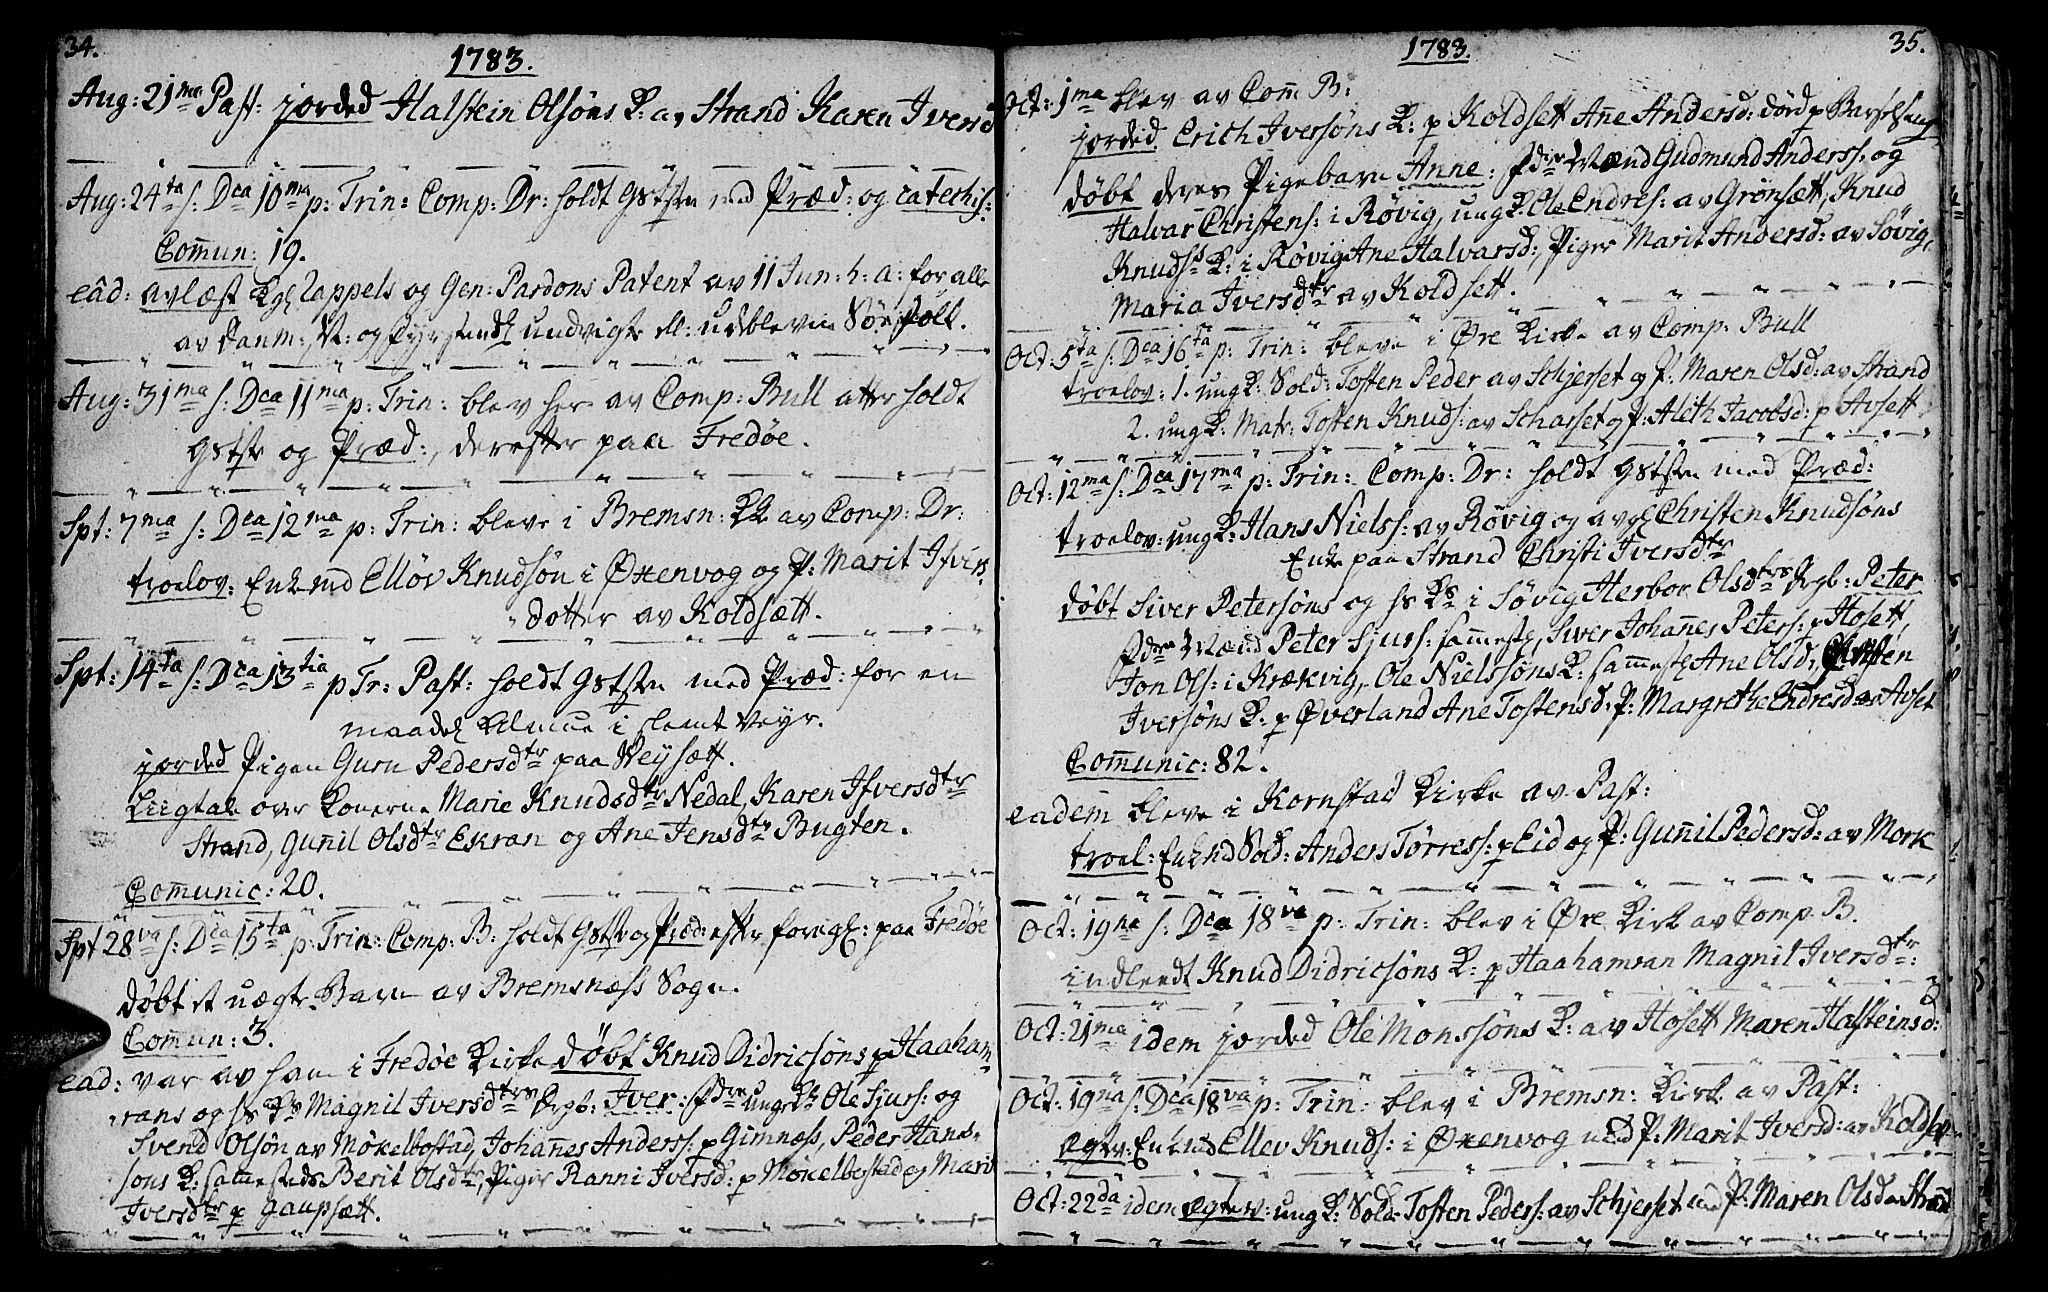 34.
1783.
Aug: 21ma Past: jorded Halstein Olsöns K: av Strand Karen Iversd
Aug: 24ta s: Dca 10ma p: Trin: Comp: Dr: holdt Gstste med Præd: og catechis:
Comun: 19.
eâd: avlæst Kgl Rappels og Gen: Pardons Patent av 11 Jun: h: a: for alle
av Danm: N: og undvigte el: udeblevne Söefolk.
Aug: 31ma s: Dca 11ma p: Trin: blev her av Comp: Bull atter holdt
Gstste og Præd:, derefter paa Fredøe.
Spt: 7ma s: Dca 12ma p: Trin: bleve i Bremsn: Kk av Comp: Dr:
troelov: Enkmd Elløv Knudsön i Øxenvog og P: Marit Ifvers
dotter av Koldsætt.
Spt: 14ta s: Dca 13tia p Tr: Past: holdt Gstste med Præd: for en
maadel Almue i slemt Veyr.
jorded Pigen Guru Pedersdtr paa Veysætt.
Liigtale over Konerne Marie Knudsdtr Nedal, Karen Ifversdtr
Strand, Guñil Olsdtr Ekran og Ane Jensdtr Bugten.
Comunic: 20.
Spt 28va s: Dca 15ta p: Trin: Comp: B: holdt Gstste og Præd: efter forrige: paa Fredöe
döbt et uægte Barn av Bremsnæss Sogn.
Comun: 3.
ead: var av ham i Fredöe Kirke döbt Knud Didricsöns p Haaham
rans og hs Ks Magnil Iversdtrs Drgb: Iver: Fdre ungK Ole Sjurs: og
Svend Olsön av Mökelbostad, Johañes Anderss: p Gimnæss, Peder Hans
sons K: samesteds Berit Olsdtr, Piger Ranni Iversd: p Mökelbostad og Marit
Iversdtr p Gaupsætt.
1783.
35.
Oct: 1ma blev av Com B:
jorded Erich Iversöns K: p Koldsett Añe Andersd: död p Barselseng
döbt deres Pigebarn Anne: Fdre Mænd Gudmund Anderss: og
Halvar Christens: i Rövig, ungK: Ole Endres: av Grönsætt, Knud
Knudss K: i Rövig Ane Halvarsd:, Piger Marit Andersd: av Sövig,
Maria Iversdtr av Koldsett.
Oct: 5ta s: Dca 16ta p: Trin: bleve i Øre Kirke av Comp: Bull
troelov: 1. ungK: Sold: Tosten Peder av Schjerset og P: Maren Olsd: av Strand
2. ungK: Matr: Tosten Knuds: av Scharset og P: Aleth Jacobsd: p Avsett
Oct: 12ma s: Dca 17ma p: Trin: Comp: Dr: holdt Gstste med Præd:
troelov: ungK: Hans Nielss: av Rövig og avgl Christen Knudsöns
Enke paa Strand Christi Iversdtr
döbt Siver Petersöns og hs Ks i Sövig Herbor Olsdtrs Drgb: Peter
Fdre Mænd Peter Sjurs: sammestd, Siver Johañes Peters: p Hosett,
Jon Ols: i Krækvig, Ole Nielssöns K: sammestd Ane Olsd:, Christen
Iversöns K: p Øverland Ane Tostensd: P: Margrethe Endresd av Avset
Comunic: 82.
eadem bleve i Kornstad Kirke av Past:
troel: Enkmd Sold: Anders Törress: p Eid og P: Guñil Pedersd: av Mork
Oct: 19na s: Dca 18va p: Trin: blev i Øre Kirk av Comp: B.
indleedt Knud Didricsöns K: p Haahamran Magnil Iversdtr:
Oct: 21ma idem jorded Ole Monssöns K: av Hosett Maren Halsteinsd:
Oct: 19na s: Dca 18va p: Trin: blev i Bremsn: Kirk av Past:
egtev: Enkmd Ellev Knuds: i Øxenvog med P: Marit Iversd: av Koldset
Oct: 22da idem egtev: ungK: Sold: Tosten Peders: av Schjerset med P: Maren Olsd a Strand